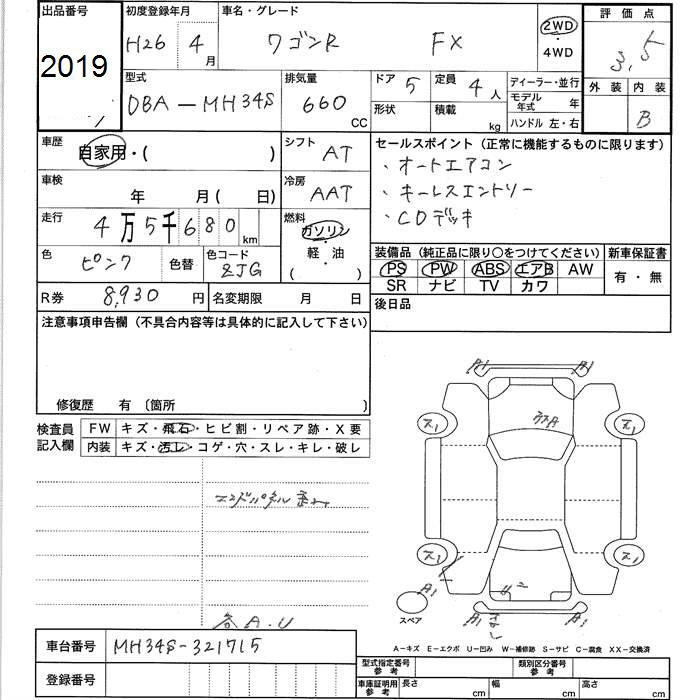 出品番号 初度登録年月 車名・グレード 2WD・4WD 評価点
2019 H26 4月 ワゴンR FX 3.5
型式 排気量 ドア 5 定員 4人 ディーラー・並行 外装 内装
DBA-MH34S 660 CC 形状 積載 kg モデル年式 年 B
ハンドル 左・右
車歴 自家用・( ) シフト AT セールスポイント(正常に機能するものに限ります)
・オートエアコン
車検 年 月( 日) 冷房 AAT ・キーレスエントリー
走行 4万5千680km 燃料 ガソリン・軽・油( ) ・CDデッキ
色 ピンク 色替 色コード ZJG 装備品(純正品に限り○をつけてください) 新車保証書
PS PW ABS エアB AW 有・無
SR ナビ TV カワ
R券 8,930円 名変期限 月 日 後日品
注意事項申告欄(不具合内容等は具体的に記入して下さい)
修復歴 有〔箇所 〕
検査員記入欄 FW キズ・飛石・ヒビ割・リペア跡・X要
内装 キズ・汚レ・コゲ・穴・スレ・キレ・破レ
A1 A1
ス1 ス1
ス1 ス1
エンドパネル歪み
A1 A1 A1
スペア
各A.U
車台番号 MH34S-321715
A-キズ E-エクボ U-凹み W-補修跡 S-サビ C-腐食 XX-交換済
登録番号 型式指定番号参考 類別区分番号参考
車庫証明用参考 長さ cm 幅 cm 高さ cm